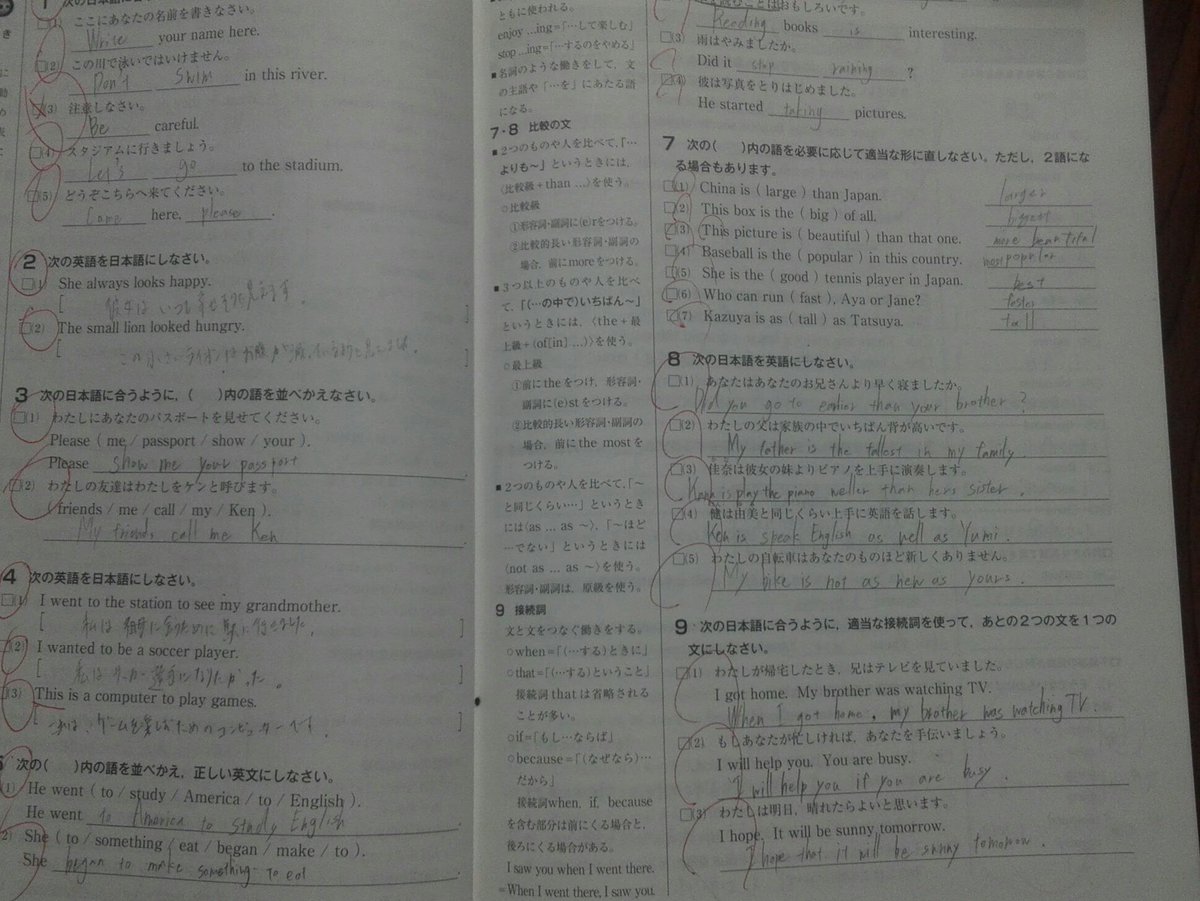 次の日本語に
(1) ここにあなたの名前を書きなさい。
Write your name here.
(2) この川で泳いではいけません。
Don't Swim in this river.
(3) 注意しなさい。
Be careful.
(4) スタジアムに行きましょう。
Let's go to the stadium.
(5) どうぞこちらへ来てください。
Come here, please.
2 次の英語を日本語にしなさい。
(1) She always looks happy.
[ 彼女はいつも幸せそうに見えます
(2) The small lion looked hungry.
[ この小さいライオンは
3 次の日本語に合うように,( )内の語を並べかえなさい。
(1) わたしにあなたのパスポートを見せてください。
Please ( me / passport / show / your ).
Please show me your passport
(2) わたしの友達はわたしをケンと呼びます。
( friends / me / call / my / Ken ).
My friends call me Ken
4 次の英語を日本語にしなさい。
(1) I went to the station to see my grandmother.
[ 私は祖母に会うために駅に行きました。 ]
(2) I wanted to be a soccer player.
[ 私はサッカー選手になりたかった。 ]
(3) This is a computer to play games.
[ これは、ゲームを楽しむためのコンピューターです。 ]
次の( )内の語を並べかえ,正しい英文にしなさい。
(1) He went ( to / study / America / to / English ).
He went to America to study English
(2) She ( to / something / eat / began / make / to ).
She began to make something to eat
ともに使われる。
enjoy …ing=「…して楽しむ」
stop …ing=「…するのをやめる」
■名詞のような働きをして,文
の主語や「…を」にあたる語
になる。
7・8 比較の文
■2つのものや人を比べて,「…
よりも〜」というときには,
〈比較級+than …〉を使う。
○比較級
①形容詞・副詞に(e)rをつける。
②比較的長い形容詞・副詞の
場合,前にmoreをつける。
■3つ以上のものや人を比べ
て,「(…の中で)いちばん〜」
というときには,〈the+最
上級+(of[in] …)〉を使う。
○最上級
①前にtheをつけ,形容詞・
副詞に(e)stをつける。
②比較的長い形容詞・副詞の
場合,前にthe mostを
つける。
■2つのものや人を比べて,「〜
と同じくらい…」というとき
には〈as … as 〜〉,「〜ほど
…でない」というときには
〈not as … as 〜〉を使う。
形容詞・副詞は,原級を使う。
9 接続詞
文と文をつなぐ働きをする。
○when=「(…する)ときに」
○that=「(…する)ということ」
接続詞thatは省略される
ことが多い。
○if=「もし…ならば」
○because=「(なぜなら)…
だから」
接続詞when, if, because
を含む部分は前にくる場合と,
後ろにくる場合がある。
I saw you when I went there.
=When I went there, I saw you.
を読むことはおもしろいです。
Reading books is interesting.
(3) 雨はやみましたか。
Did it stop raining ?
(4) 彼は写真をとりはじめました。
He started taking pictures.
7 次の( )内の語を必要に応じて適当な形に直しなさい。ただし,2語にな
る場合もあります。
(1) China is ( large ) than Japan. larger
(2) This box is the ( big ) of all. biggest
(3) This picture is ( beautiful ) than that one. more beautiful
(4) Baseball is the ( popular ) in this country. most popular
(5) She is the ( good ) tennis player in Japan. best
(6) Who can run ( fast ), Aya or Jane? faster
(7) Kazuya is as ( tall ) as Tatsuya. tall
8 次の日本語を英語にしなさい。
(1) あなたはあなたのお兄さんより早く寝ましたか。
Did you go to earlier than your brother ?
(2) わたしの父は家族の中でいちばん背が高いです。
My father is the tallest in my family.
(3) 佳奈は彼女の妹よりピアノを上手に演奏します。
is play the piano weller than hers sister.
(4) 健は由美と同じくらい上手に英語を話します。
Ken is speak English as well as Yumi.
(5) わたしの自転車はあなたのものほど新しくありません。
My bike is not as new as yours.
9 次の日本語に合うように,適当な接続詞を使って,あとの2つの文を1つの
文にしなさい。
(1) わたしが帰宅したとき,兄はテレビを見ていました。
I got home. My brother was watching TV.
When I got home, my brother was watching TV.
(2) もしあなたが忙しければ,あなたを手伝いましょう。
I will help you. You are busy.
I will help you if you are busy.
(3) わたしは明日,晴れたらよいと思います。
I hope. It will be sunny tomorrow.
I hope that it will be sunny tomorrow.